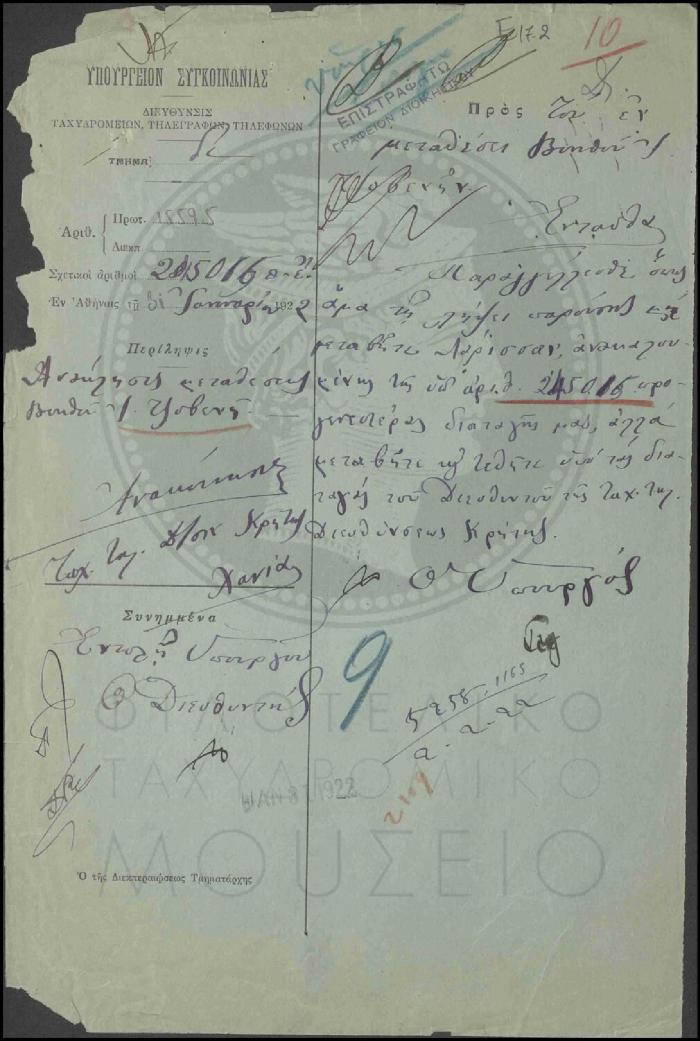 Ε 17.2
10
ΥΠΟΥΡΓΕΙΟΝ ΣΥΓΚΟΙΝΩΝΙΑΣ
ΔΙΕΥΘΥΝΣΙΣ
ΤΑΧΥΔΡΟΜΕΙΩΝ, ΤΗΛΕΓΡΑΦΩΝ, ΤΗΛΕΦΩΝΩΝ
ΤΜΗΜΑ
Ἀριθ.
Πρωτ. 15595
Διεκπ.
Σχετικοὶ ἀριθμοὶ 245016
Ἐν Ἀθήναις τῇ 31 Ἰανουαρίου 1922
Περίληψις
Ἀνάκλησις μεταθέσεως
βοηθοῦ Γ. Τζοβενῆ
Ἀνακοίνωσις
Ταχ. Τηλ. Δ/σιν Κρήτης
Χανιά
Συνημμένα
Ἐντολῇ Ὑπουργοῦ
Ὁ Διευθυντής
Ὁ τῆς Διεκπεραιώσεως Τμηματάρχης
ΕΠΙΣΤΡΑΦΗΤΩ
ΓΡΑΦΕΙΟΝ ΔΙΟΙΚΗΤΙΚΟΥ
Πρὸς
Τὸν ἐν
μεταθέσει βοηθὸν Γ.
Τζοβενῆν
Ἐνταῦθα
Παραγγέλλεσθε ὅπως
ἅμα τῇ λήψει παρούσης μὴ
μεταβῆτε Λάρισσαν, ἀνακαλου-
μένης τῆς ὑπ' ἀριθ. 245016 προ-
γενεστέρας διαταγῆς μας, ἀλλὰ
μεταβῆτε καὶ τεθῆτε ὑπὸ τὰς δια-
ταγὰς τοῦ Διευθυντοῦ τῆς Ταχ. Τηλ.
Διευθύνσεως Κρήτης.
Ὁ Ὑπουργός
9
5258
2-2-22
ΙΑΝ 31 1922
ΦΙΛΟΤΕΛΙΚΟ
ΤΑΧΥΔΡΟΜΙΚΟ
ΜΟΥΣΕΙΟ